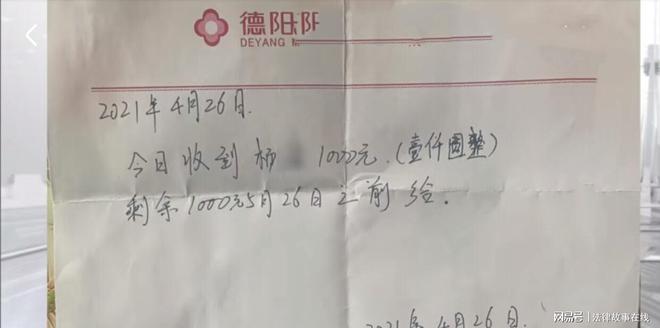 德阳阳
DEYANG
2021年4月26日.
今日收到杨 1000元.(壹仟圆整)
剩余1000元5月26日之前给.
2021年4月26日.
网易号 | 法律故事在线